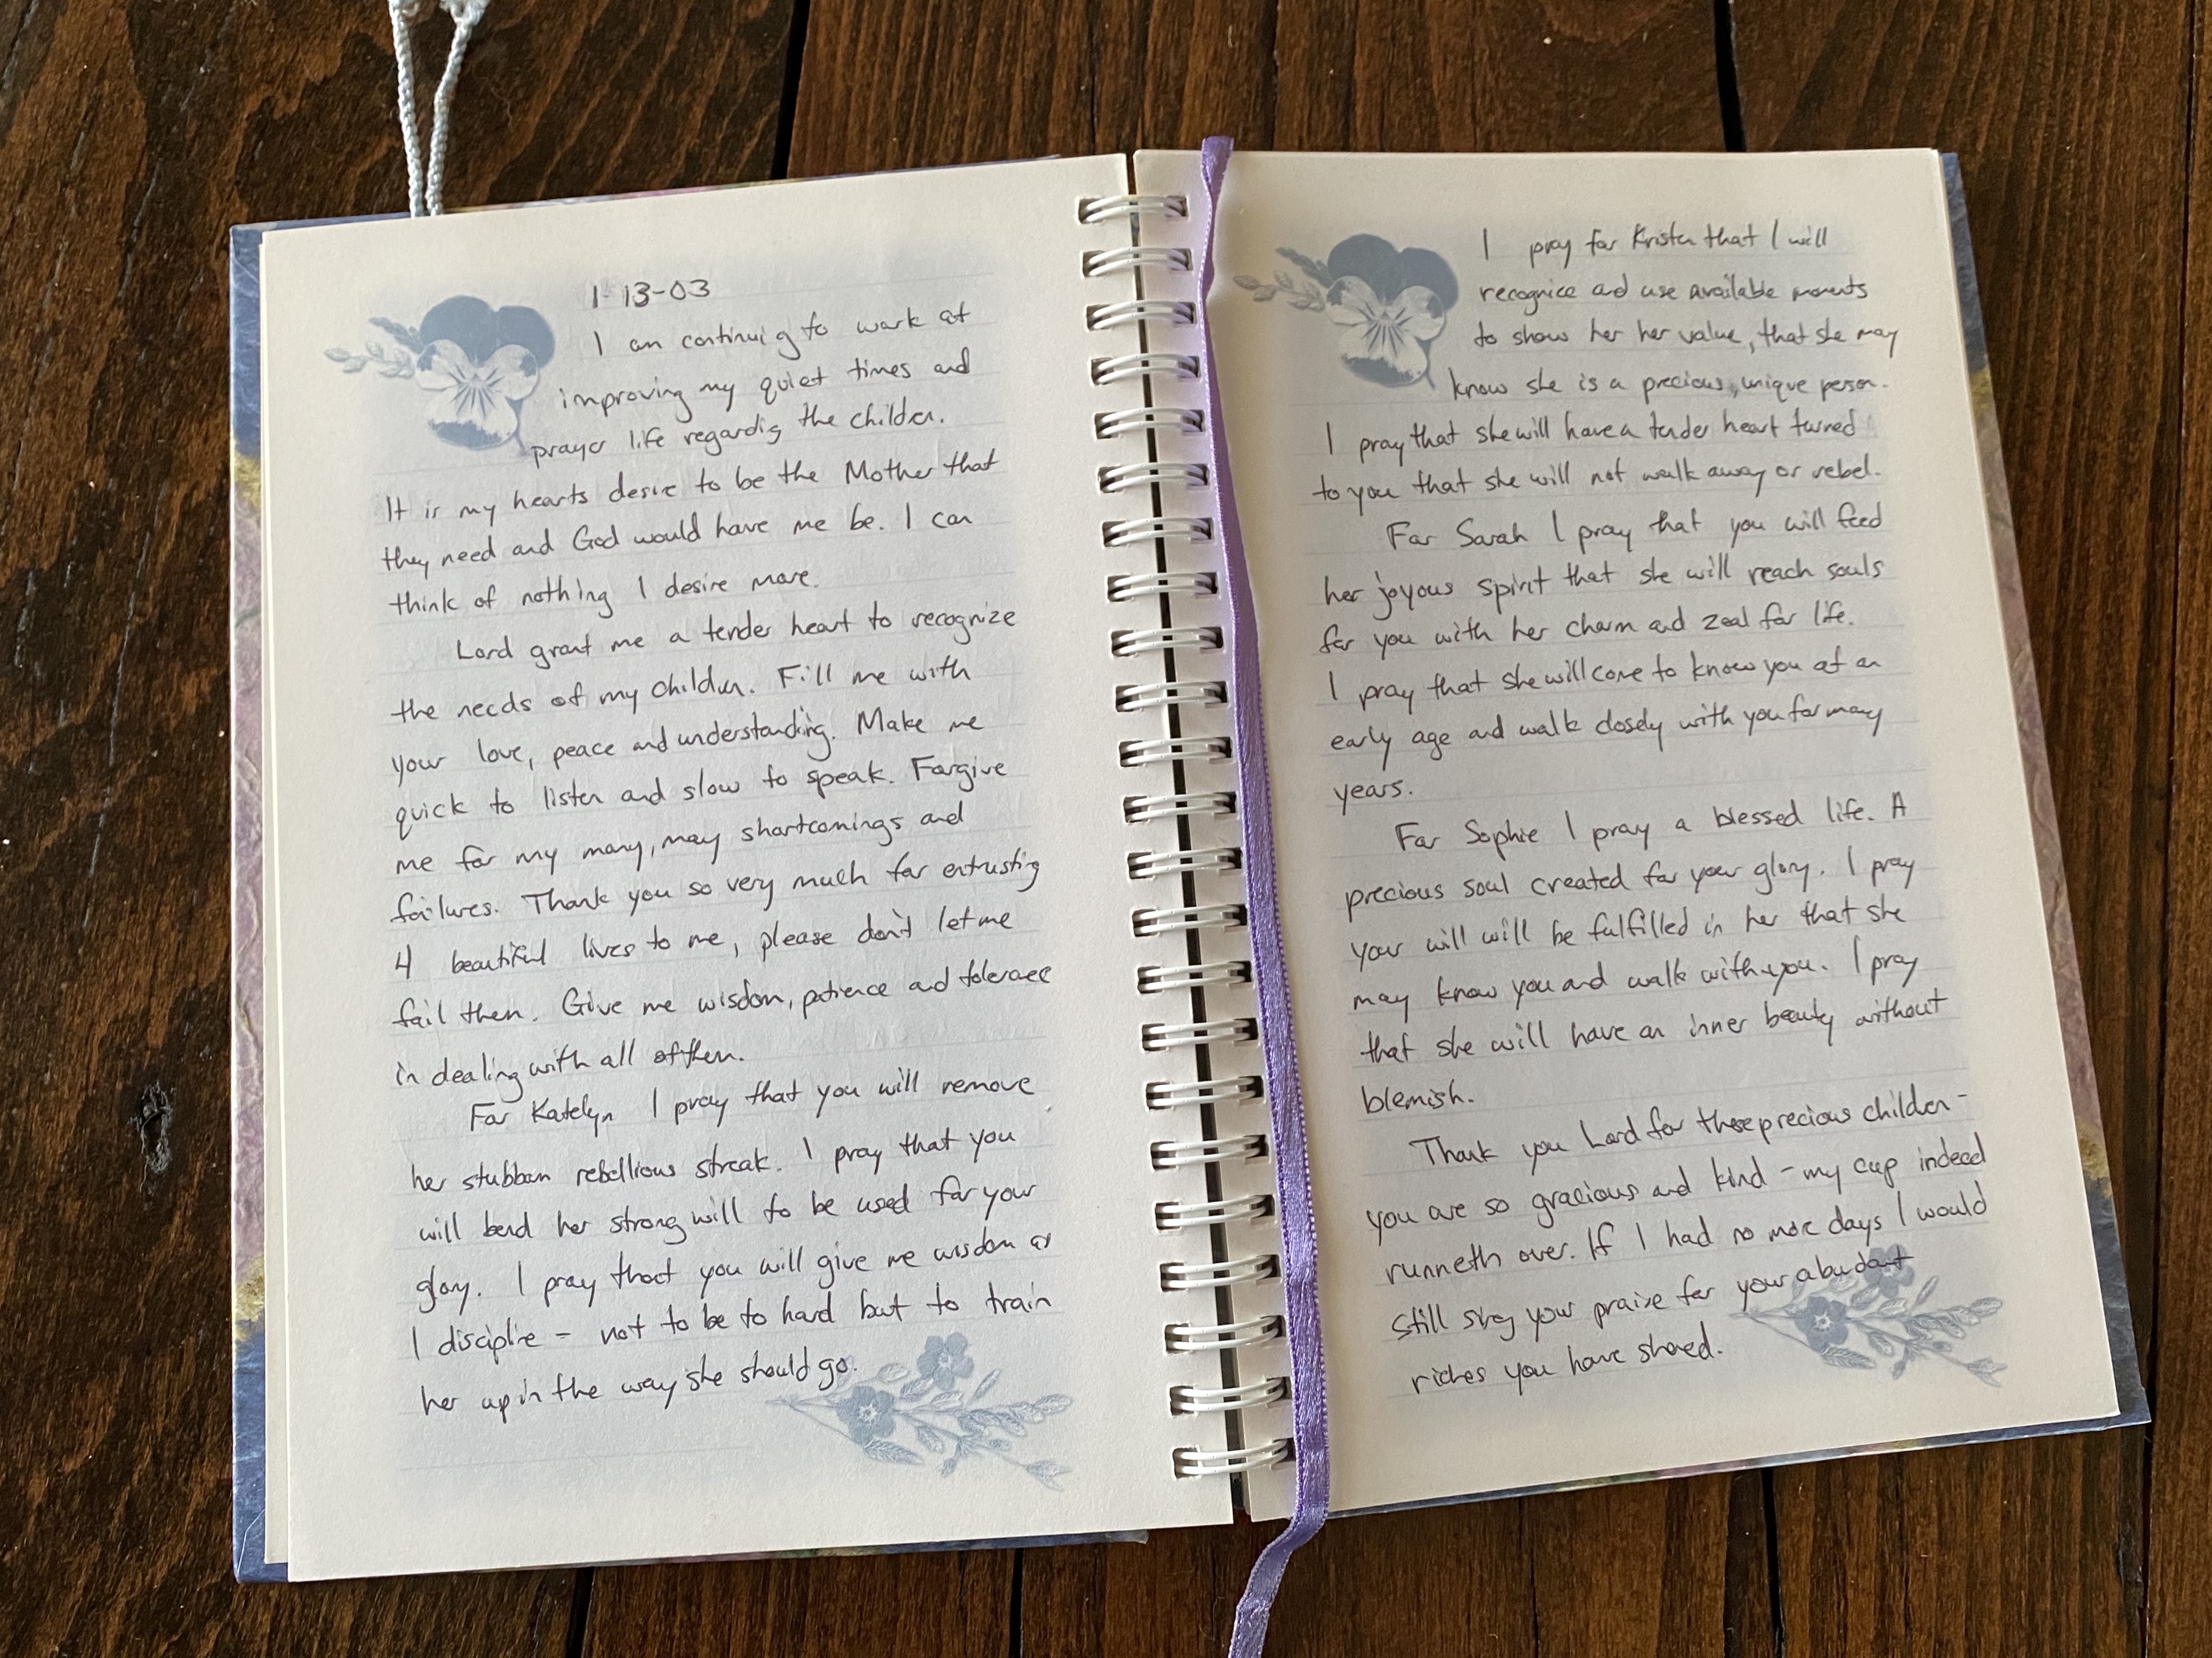 1-13-03
I am continuing to work at
improving my quiet times and
prayer life regarding the children.
It is my hearts desire to be the Mother that
they need and God would have me be. I can
think of nothing I desire more.
Lord grant me a tender heart to recognize
the needs of my children. Fill me with
your love, peace and understanding. Make me
quick to listen and slow to speak. Forgive
me for my many, many shortcomings and
failures. Thank you so very much for entrusting
4 beautiful lives to me, please don't let me
fail them. Give me wisdom, patience and tolerance
in dealing with all of them.
For Katelyn I pray that you will remove
her stubborn rebellious streak. I pray that you
will bend her strong will to be used for your
glory. I pray that you will give me wisdom as
I discipline - not to be to hard but to train
her up in the way she should go.
I pray for Kristen that I will
recognize and use available moments
to show her her value, that she may
know she is a precious, unique person.
I pray that she will have a tender heart turned
to you that she will not walk away or rebel.
For Sarah I pray that you will feed
her joyous spirit that she will reach souls
for you with her charm and zeal for life.
I pray that she will come to know you at an
early age and walk closely with you for many
years.
For Sophie I pray a blessed life. A
precious soul created for your glory. I pray
your will will be fulfilled in her that she
may know you and walk with you. I pray
that she will have an inner beauty without
blemish.
Thank you Lord for these precious children -
you are so gracious and kind - my cup indeed
runneth over. If I had no more days I would
still sing your praise for your abundant
riches you have shared.